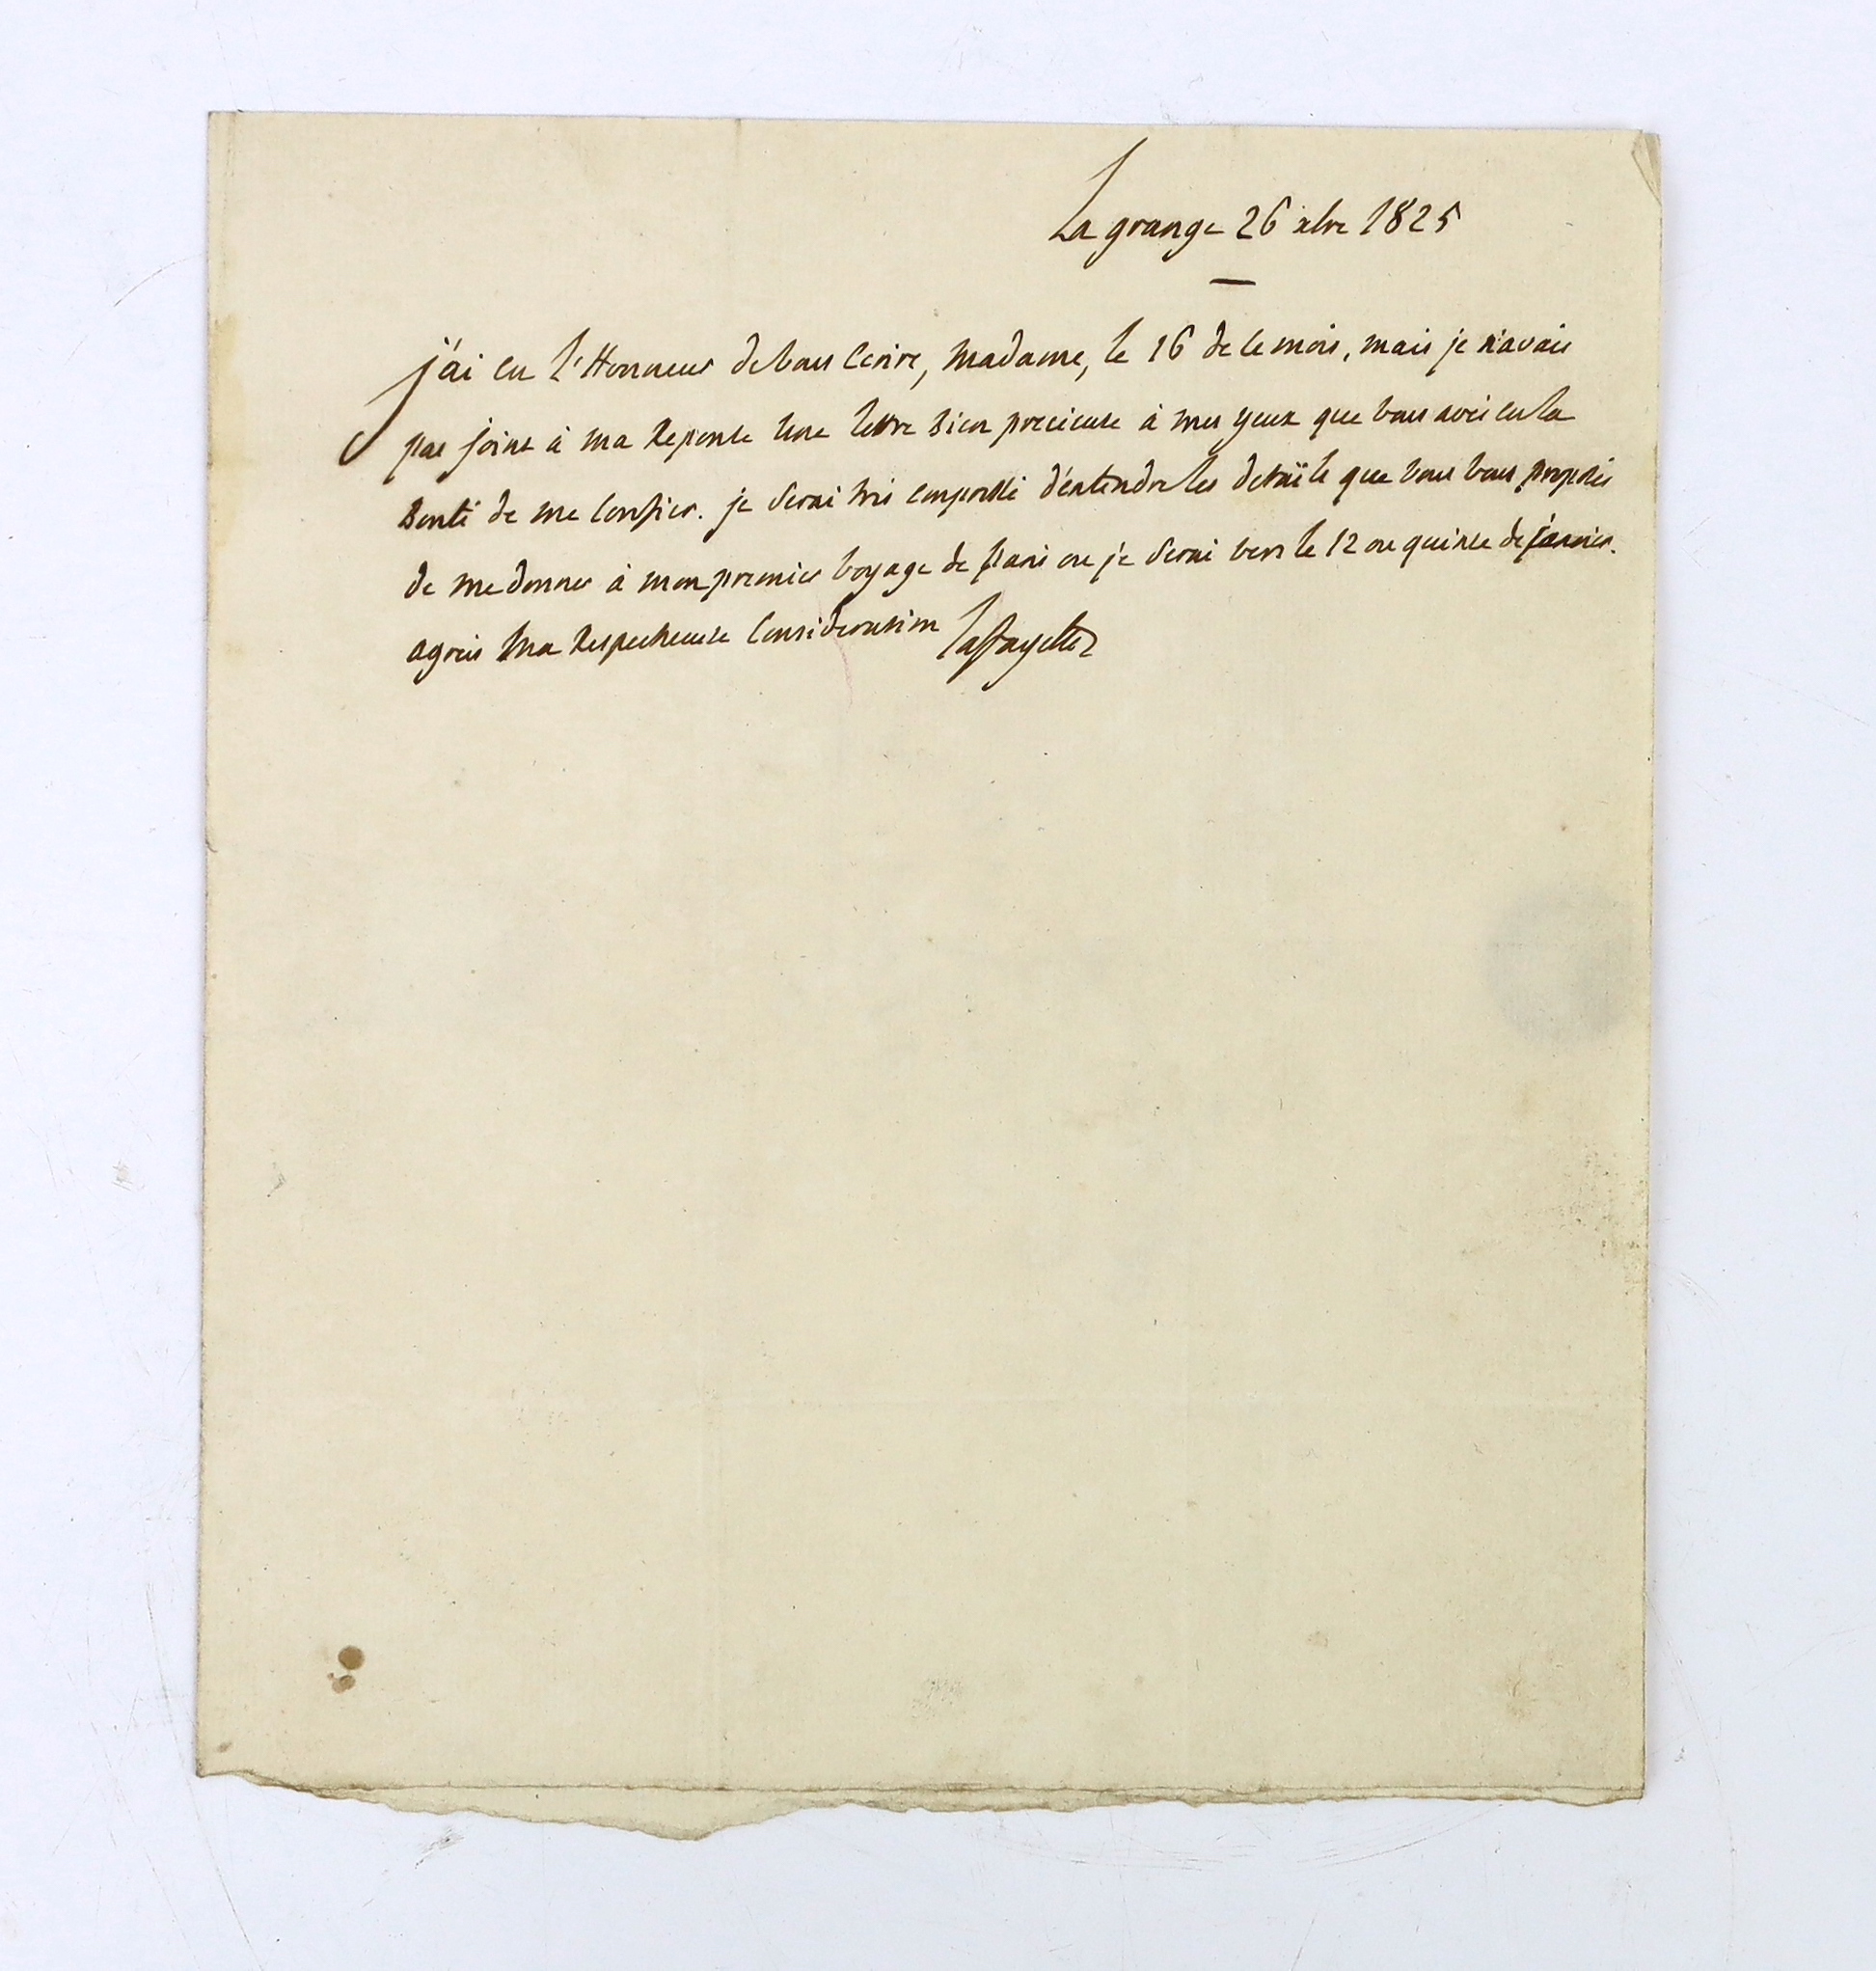 La grange 26 xbre 1825
j'ai eu l'Honneur de vous ecrire, Madame, le 16 de ce mois, mais je n'avais
pas joint à ma Reponse une lettre bien precieuse à mes yeux que vous avés eu la
bonté de me confier. je serai très empressé d'entendre les detaïls que vous vous proposés
de me donner à mon premier voyage de paris ou je serai vers le 12 ou quinze de janvier.
agreés ma Respectueuse consideration Lafayette